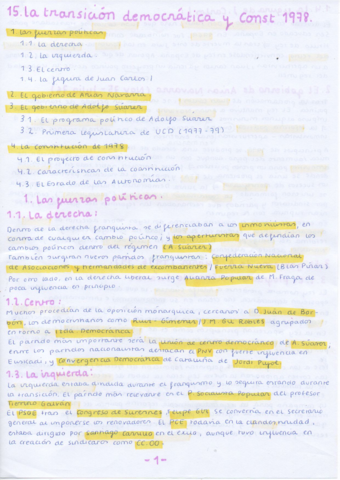 15. La transición democrática y Const 1978.
1. Las fuerzas políticas
1.1. La derecha
1.2. La izquierda.
1.3. El centro
1.4. La figura de Juan Carlos I
2. El gobierno de Arias Navarro
3. El gobierno de Adolfo Súarez
3.1. El programa político de Adolfo Súarez
3.2. Primera legislatura de UCD (1977-79)
4. La constitución de 1978
4.1. El proyecto de constitución
4.2. Características de la constitución
4.3. El Estado de las Autonomías.
1. Las fuerzas políticas.
1.1. La derecha:
Dentro de la derecha franquista se diferenciaban a los inmovilistas, en
contra de cualquier cambio político y los aperturistas que defendían los
cambios políticos dentro del régimen (A. Súarez)
También surgirán nuevos partidos franquistas: Confederación Nacional
de Asociaciones y Hermandades de Excombatientes / Fuerza Nueva (Blas Piñar)
Por otro lado, en la derecha liberal surge Alianza Popular de M. Fraga de
poca influencia en principio.
1.2. Centro:
Muchos procedían de la oposición monárquica, cercanos a D. Juan de Bor-
bón, los democristianos como Ruiz-Giménez / M. Gil Robles agrupados
en torno a Izda. Democrática /
El partido más importante será la unión de centro democrático de A. Súarez
entre los partidos nacionalistas destacan el PNV con fuerte influencia en
Euskadi, y Convergencia Democrática de Cataluña de Jordi Pujol
1.3. La izquierda:
La izquierda estaba dividida durante el franquismo y lo seguirá estando durante
la transición. El partido más relevante era el P. Socialista Popular del profesor
Tierno Galván
El PSOE tras el Congreso de Suresnes, Felipe Glez se convertía en el secretario
general al imponerse los renovadores. El PCE todavía en la clandestinidad,
estaba dirigido por Santiago Carrillo en el exilio, aunque tuvo influencia en
la creación de sindicatos como CC.OO.
-1-